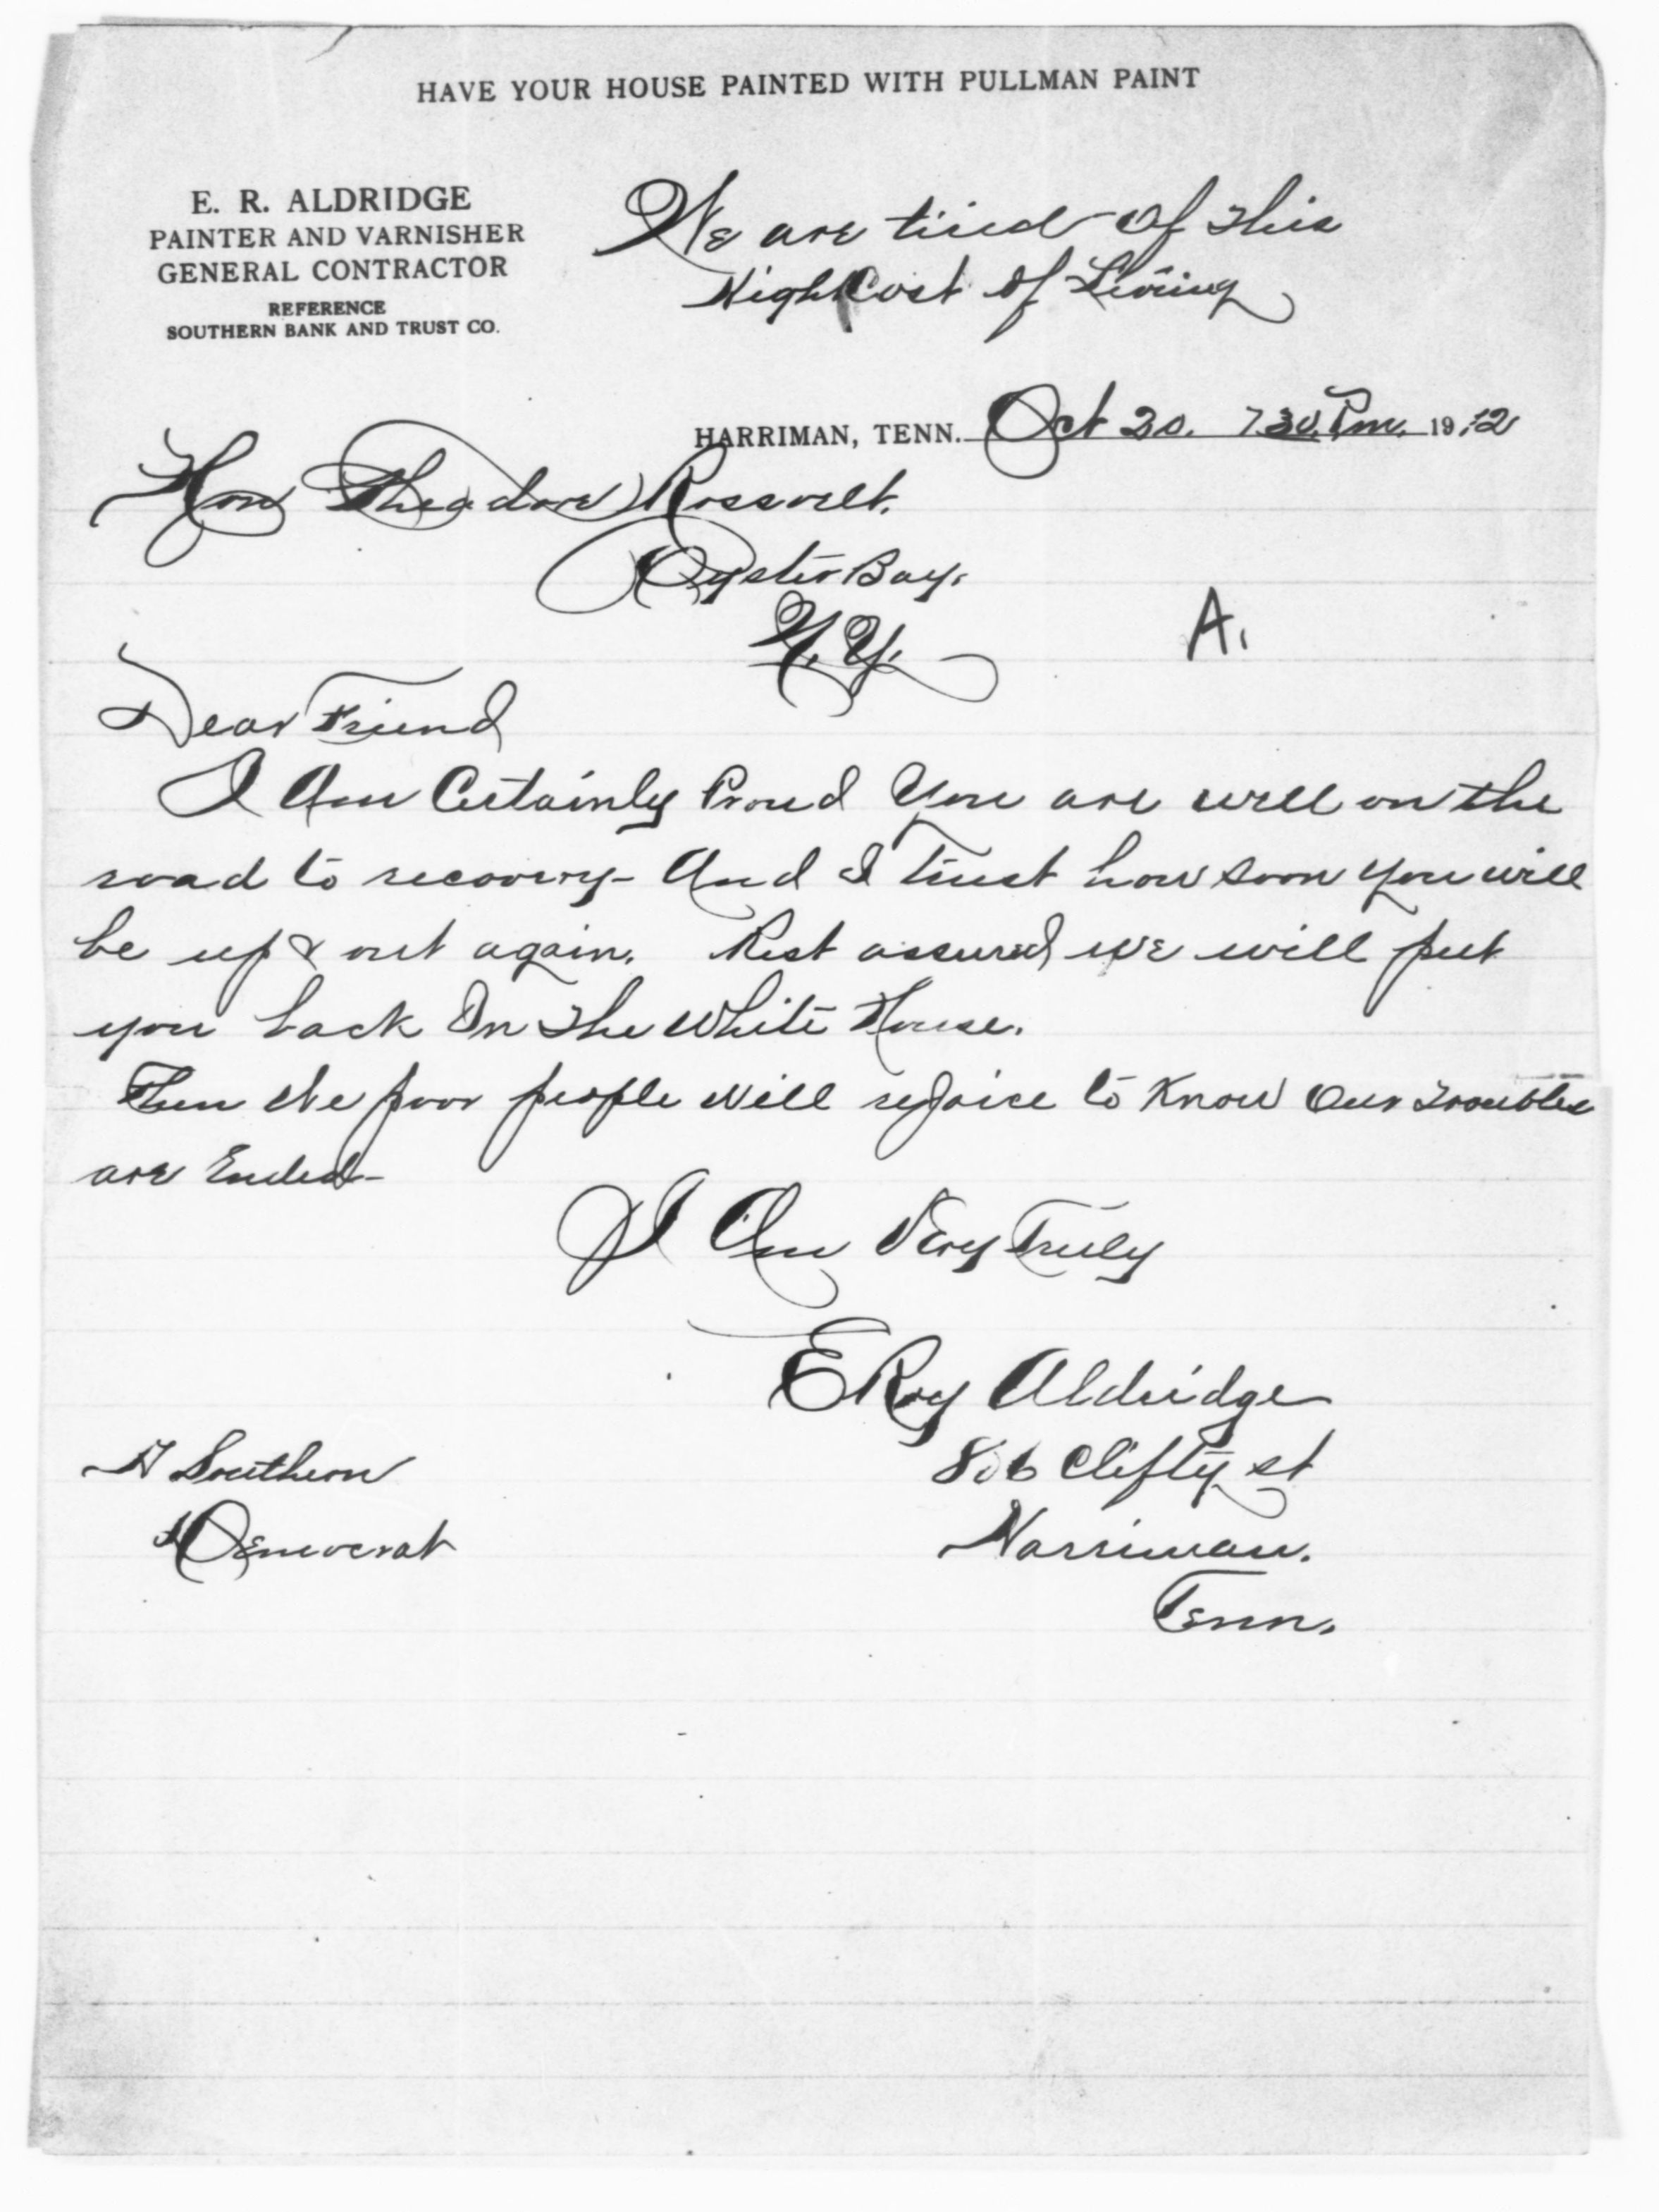 HAVE YOUR HOUSE PAINTED WITH PULLMAN PAINT
E. R. ALDRIDGE
PAINTER AND VARNISHER
GENERAL CONTRACTOR
REFERENCE
SOUTHERN BANK AND TRUST CO.
We are tired of this
High Cost of Living
HARRIMAN, TENN. Oct 20. 7.30 Pm. 1912
Hon Theadore Rossvelt.
Oyster Bay.
N.Y.
A.
Dear Friend
I Am Certainly Proud You are well on the
road to recovery- And I Trust how soon you will
be up & out again. Rest assured we will put
you back In the White House.
Then We poor people will rejoice to Know Our Troubles
are Ended-
I Am Very Truly
E Roy Aldridge
A Southern
806 Clifty st
Democrat
Harriman.
Tenn.